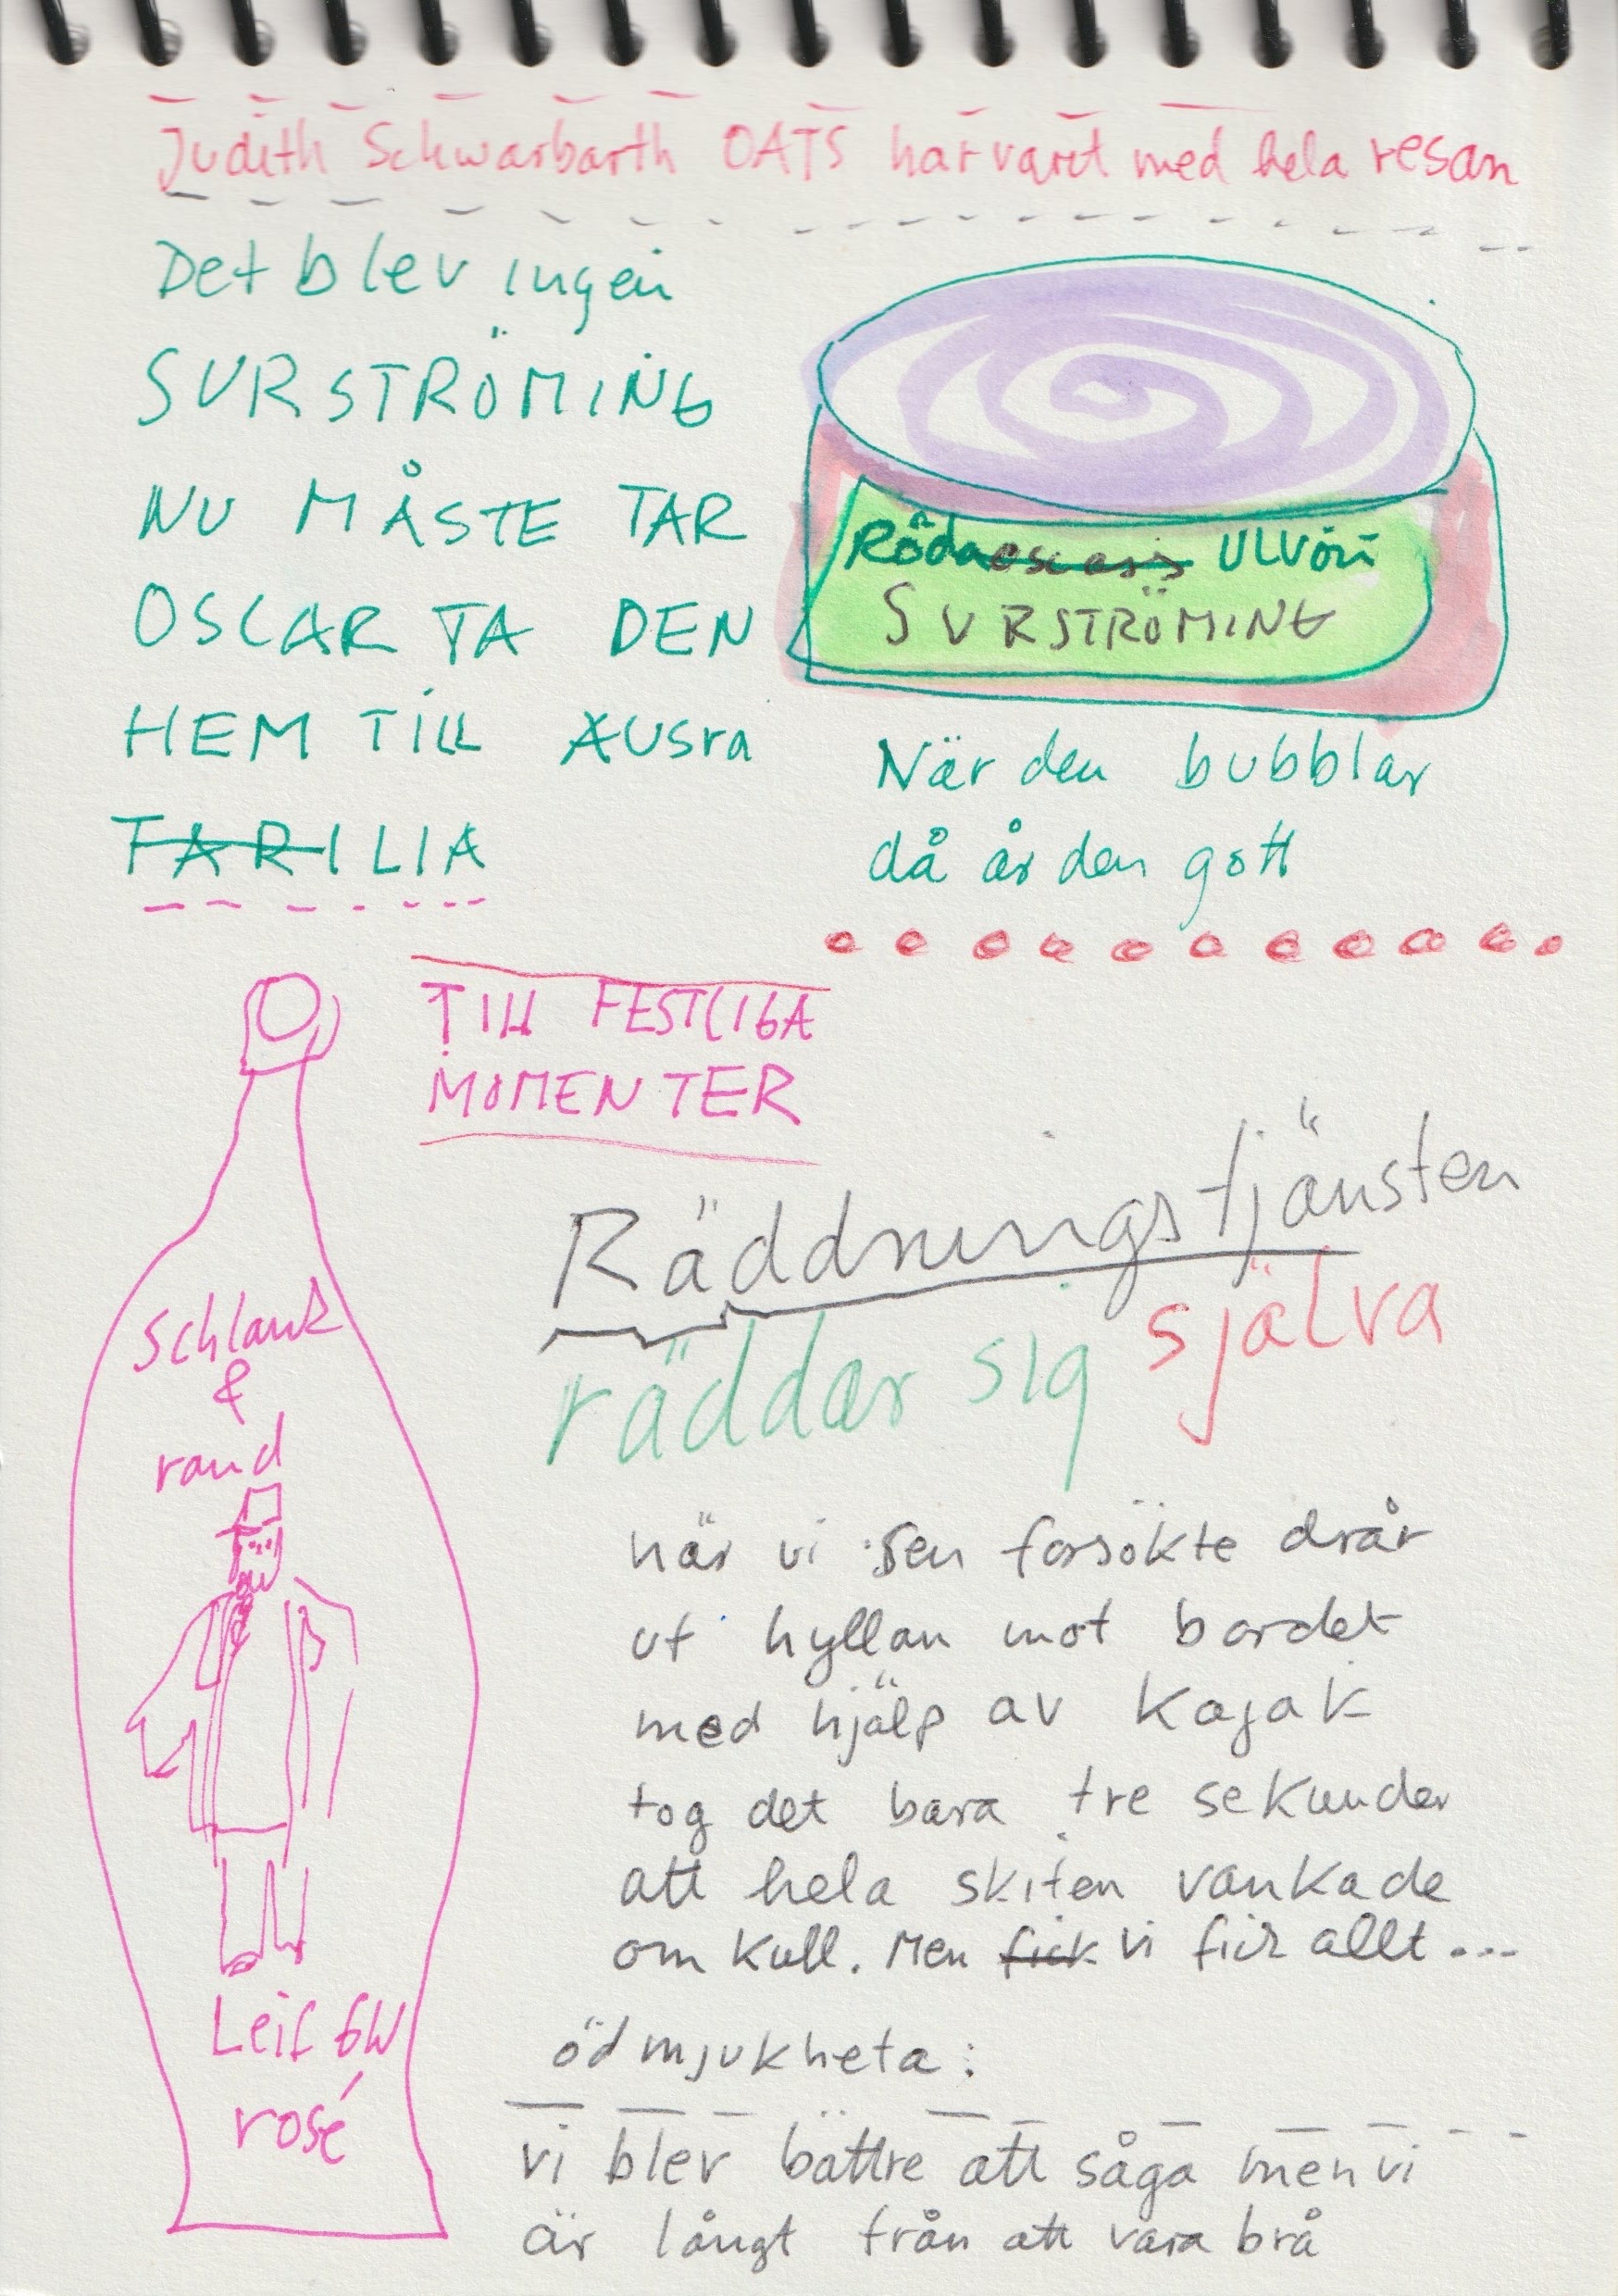 Judith Schwarbarth OATS har varit med hela resan
Det blev ingen
SURSTRÖMING
NU MÅSTE TAR
OSCAR TA DEN
HEM TILL AUSra
FARILIA
Röda ULVÖN
SURSTRÖMING
När den bubblar
då år den gott
TILL FESTLIGA
MOMENTER
Schlank
&
rand
Leif GW
rosé
Räddningstjänsten
räddar sig själva
när vi sen forsökte drår
ut hyllan mot bordet
med hjälp av kajak
tog det bara tre sekunder
att hela skiten vankade
om kull. Men fick vi fick allt...
ödmjukheta:
vi blev bättre att såga men vi
är långt från att vara brå